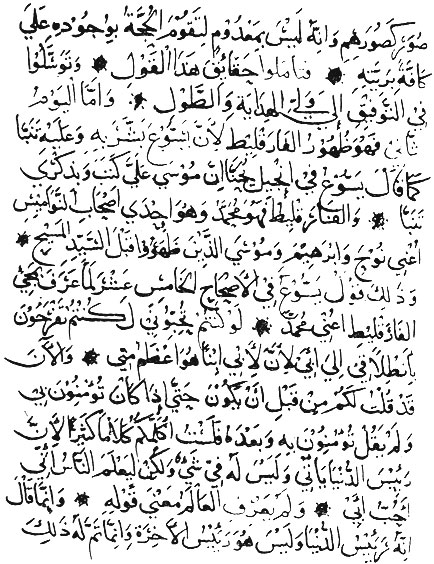 صور كصورهم وانه ليس بمعدوم لتقوم الحجة بوجوده علي
كافة بريته ✹ فتاملوا حقايق هذا القول ✹ وتوسلوا
في التوفيق الي ولي الهدايه والطول ✹ واما اليوم
الثاني فهو ظهور الفارقليط لان ايسوع بشر به وعليه تنبا
كما قال يسوع في الانجيل محتجا ان موسي علي كتب وبذكري
تنبا ✹ والفارقليط فهو محمد وهو احدي اصحاب النواميس
اعني نوح وابرهيم وموسي الذين ظهروا قبل السيد المسيح ✹
وذلك قول يسوع في الاصحاح الخامس عشر لما عرف بمجي
الفارقليط اعني محمد ✹ لو كنتم تحبوني لكنتم تفرحون
بانطلاقي الي ابي لان لابي الذي هو اعظم مني ✹ والان
قد قلت لكم من قبل ان يكون حتي اذا كان تومنون بي
ولم يقل تومنون به وبعده فلست اكلمكم كلاما كثيرا لان
رييس الدنيا ياتي وليس له في شي ولكن ليعلم الناس اني
احب ابي ✹ ولم يعرف العالم معني قوله ✹ وانما قال
انه رييس الدنيا وليس هو رييس الاخرة وانما تم له ذلك